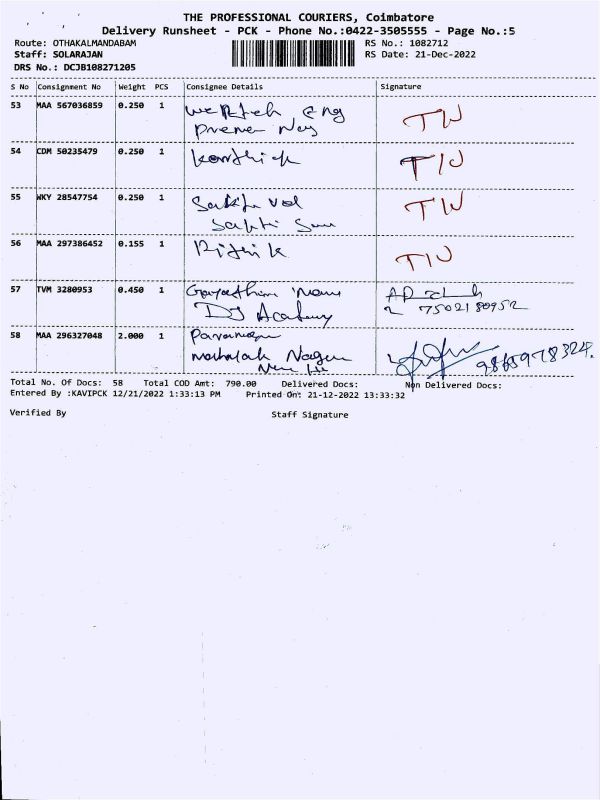 THE PROFESSIONAL COURIERS, Coimbatore
Delivery Runsheet - PCK - Phone No.:0422-3505555 - Page No.:5
Route: OTHAKALMANDABAM RS No.: 1082712
Staff: SOLARAJAN RS Date: 21-Dec-2022
DRS No.: DCJB108271205
S No Consignment No Weight PCS Consignee Details Signature
53 MAA 567036859 0.250 1 Eng TW
54 CDM 50235479 0.250 1 Karthick TW
55 WKY 28547754 0.250 1 Sakthi Vel TW
Sakthi
56 MAA 297386452 0.155 1 Rithik TW
57 TVM 3280953 0.450 1 Gayathiri
DJ Academy 7502180952
58 MAA 296327048 2.000 1
Mahalak Nagar 9865978324.
Total No. Of Docs: 58 Total COD Amt: 790.00 Delivered Docs: Non Delivered Docs:
Entered By :KAVIPCK 12/21/2022 1:33:13 PM Printed On: 21-12-2022 13:33:32
Verified By Staff Signature